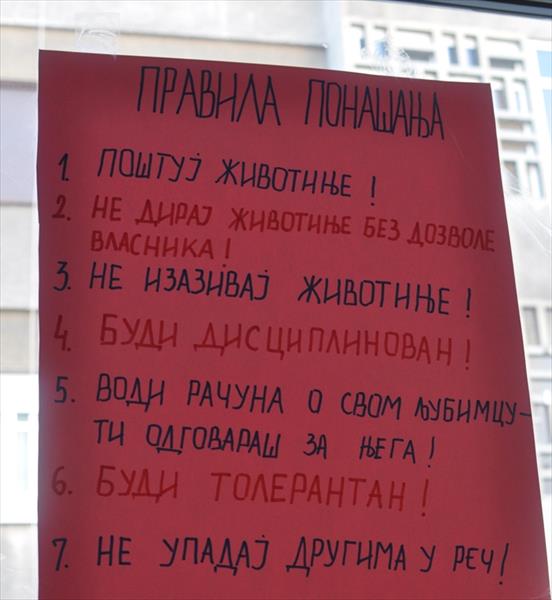 ПРАВИЛА ПОНАШАЊА
1. ПОШТУЈ ЖИВОТИЊЕ!
2. НЕ ДИРАЈ ЖИВОТИЊЕ БЕЗ ДОЗВОЛЕ
ВЛАСНИКА!
3. НЕ ИЗАЗИВАЈ ЖИВОТИЊЕ!
4. БУДИ ДИСЦИПЛИНОВАН!
5. ВОДИ РАЧУНА О СВОМ ЉУБИМЦУ-
ТИ ОДГОВАРАШ ЗА ЊЕГА!
6. БУДИ ТОЛЕРАНТАН!
7. НЕ УПАДАЈ ДРУГИМА У РЕЧ!